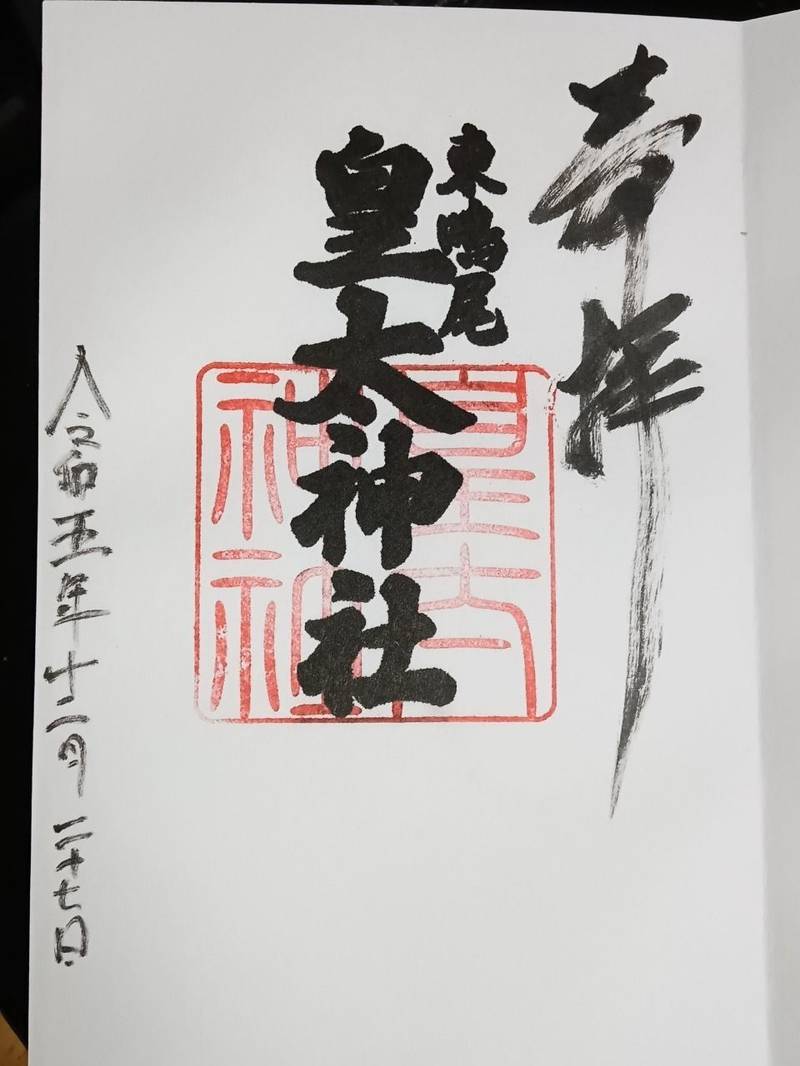 奉拝
東鳴尾
皇大神社
皇大
神社
令和五年十二月二十七日